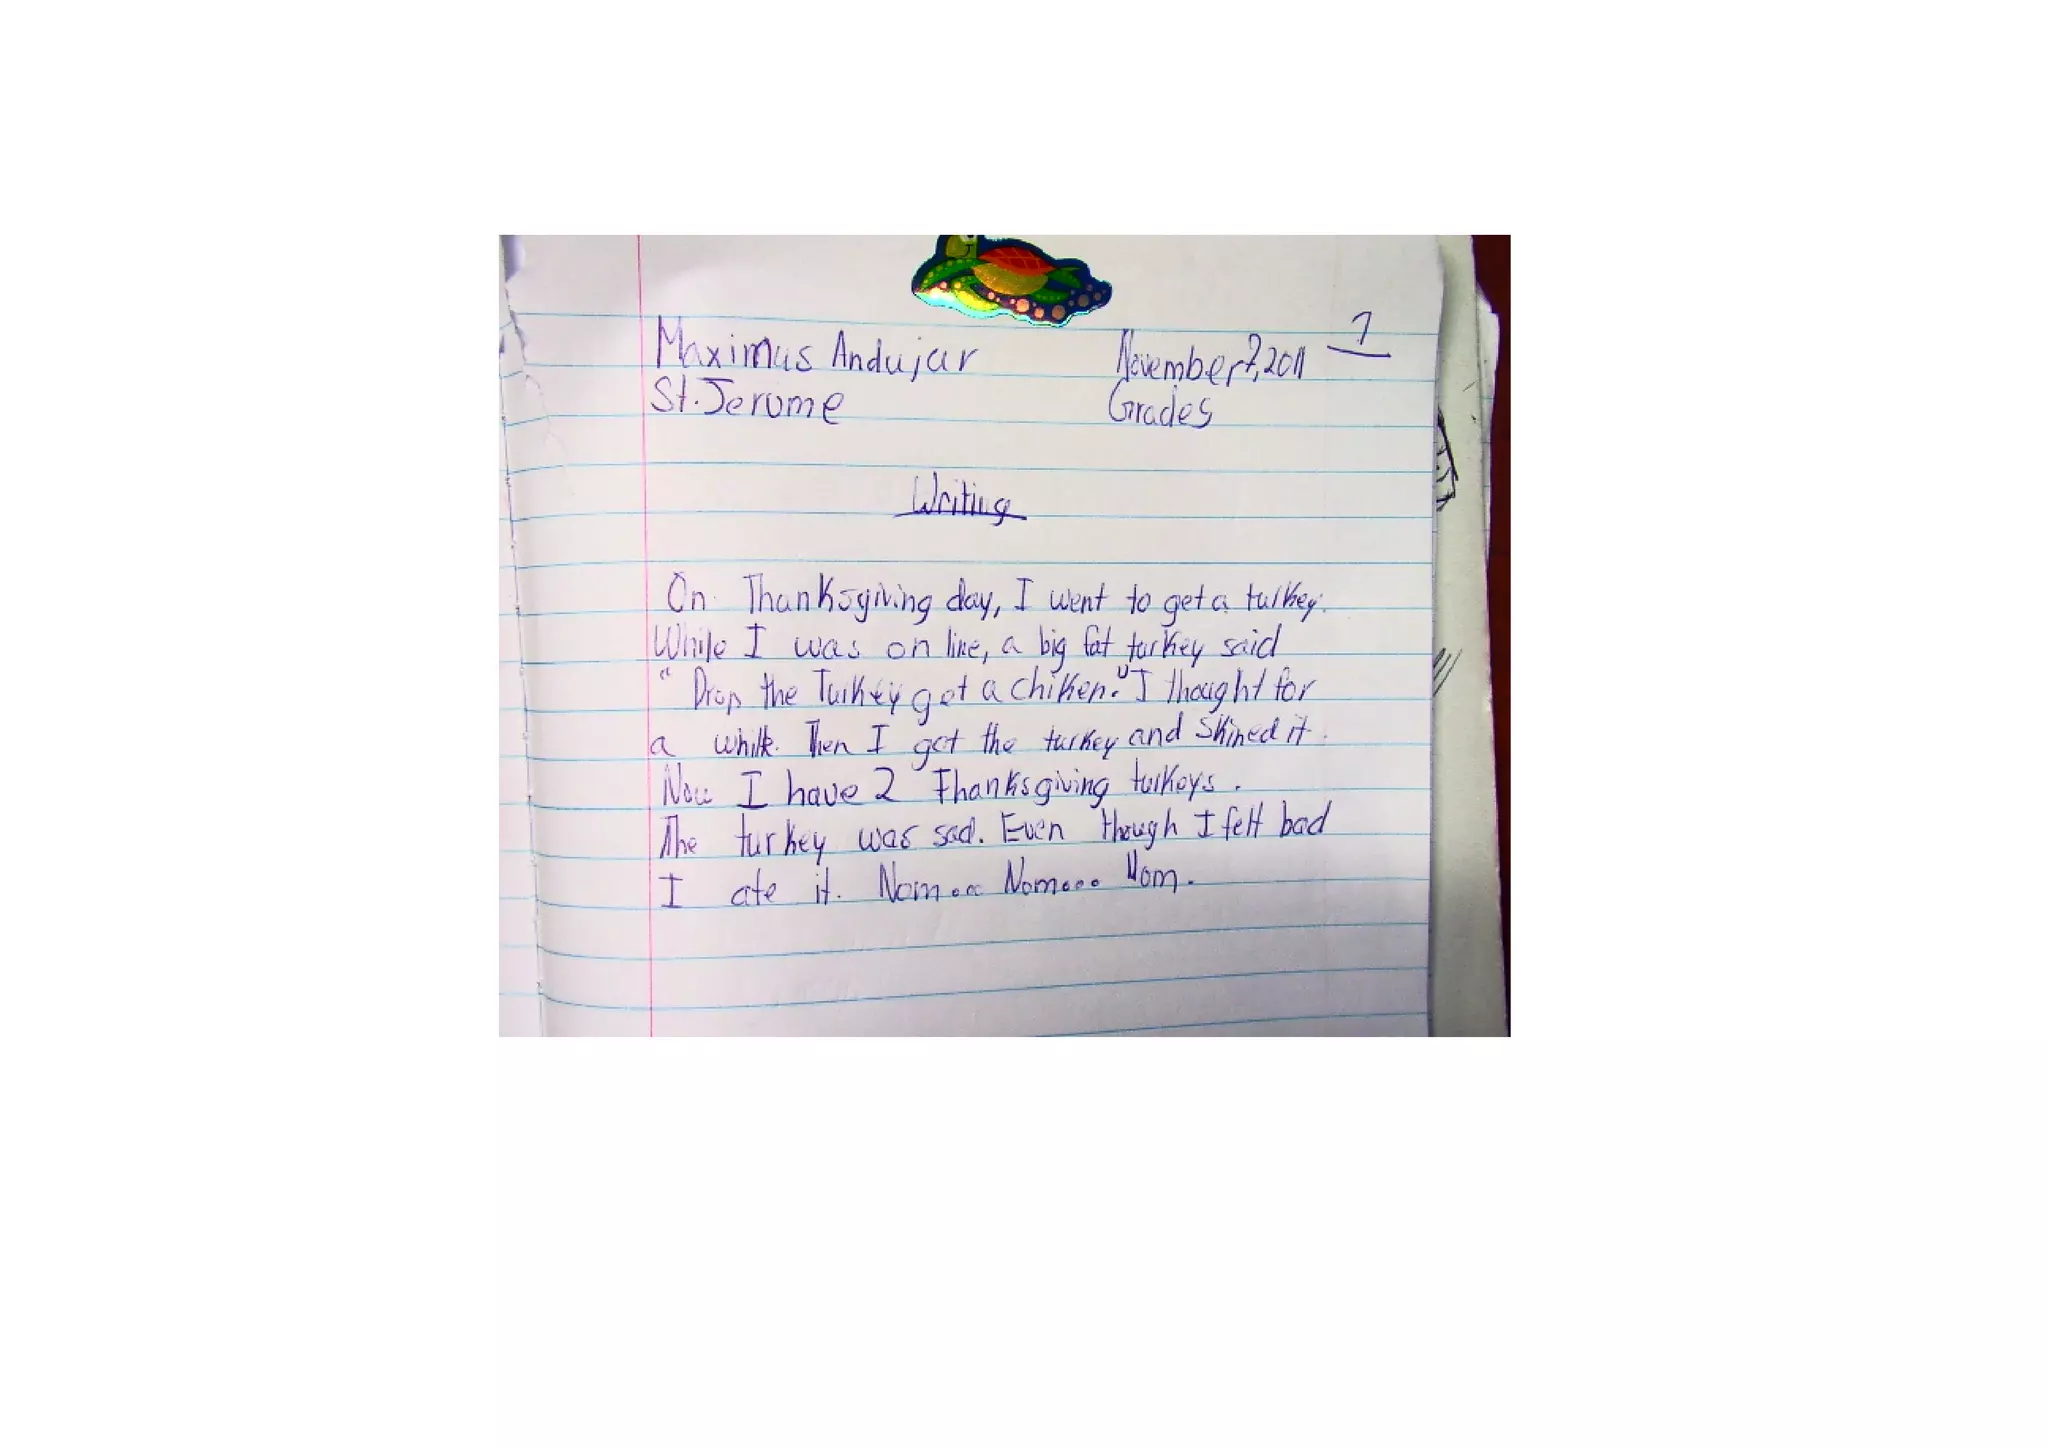 1
Maximus Andujar November 7, 2011
St. Jerome Grade5
Writing
On Thanksgiving day, I went to get a turkey.
While I was on line, a big fat turkey said
" Drop the Turkey get a chiken." I thought for
a while. Then I got the turkey and skined it.
Now I have 2 Thanksgiving turkeys.
The turkey was sad. Even though I felt bad
I ate it. Nom... Nom... Nom.